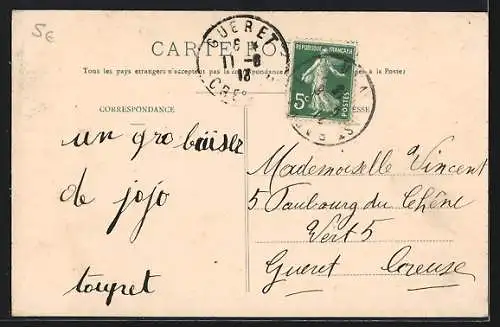 5€
CARTE POS
GUERET
6 *
11 -8
13
CRE
REPUBLIQUE FRANÇAISE
5c POSTES
Tous les pays étrangers n'acceptent pas la correspondance à la Poste)
CORRESPONDANCE
ESSE
un gro baiser
de jojo
touyret
Mademoiselle Vincent
5 Faubourg du Chêne
Vert 5
Gueret Creuse